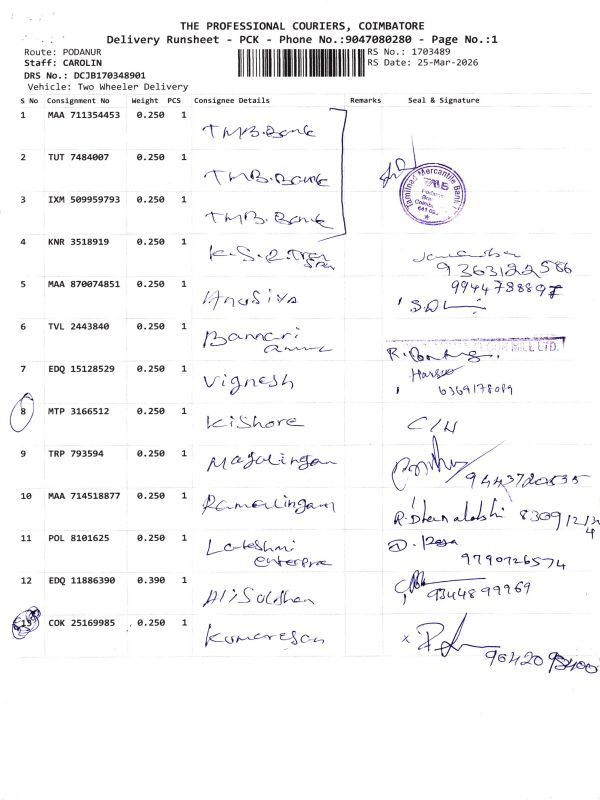 THE PROFESSIONAL COURIERS, COIMBATORE
Delivery Runsheet - PCK - Phone No.:9047080280 - Page No.:1
Route: PODANUR
RS No.: 1703489
Staff: CAROLIN
RS Date: 25-Mar-2026
DRS No.: DCJB170348901
Vehicle: Two Wheeler Delivery
S No Consignment No Weight PCS Consignee Details Remarks Seal & Signature
1 MAA 711354453 0.250 1 TMB.Bank
2 TUT 7484007 0.250 1 TMB.Bank
Tamilnad Mercantile Bank
3 IXM 509959793 0.250 1 TMB.Bank
4 KNR 3518919 0.250 1 K.S.R.
9363122586
5 MAA 870074851 0.250 1 Anusiya
9944788897
6 TVL 2443840 0.250 1 Bannari
MILL LTD.
7 EDQ 15128529 0.250 1 Vignesh
6369178089
8 MTP 3166512 0.250 1 Kishore
9 TRP 793594 0.250 1 Magalingam
9443720535
10 MAA 714518877 0.250 1 Ramalingam
11 POL 8101625 0.250 1 Lakshmi
9790726574
12 EDQ 11886390 0.390 1 Ali
9344899969
13 COK 25169985 0.250 1 Kumaresan